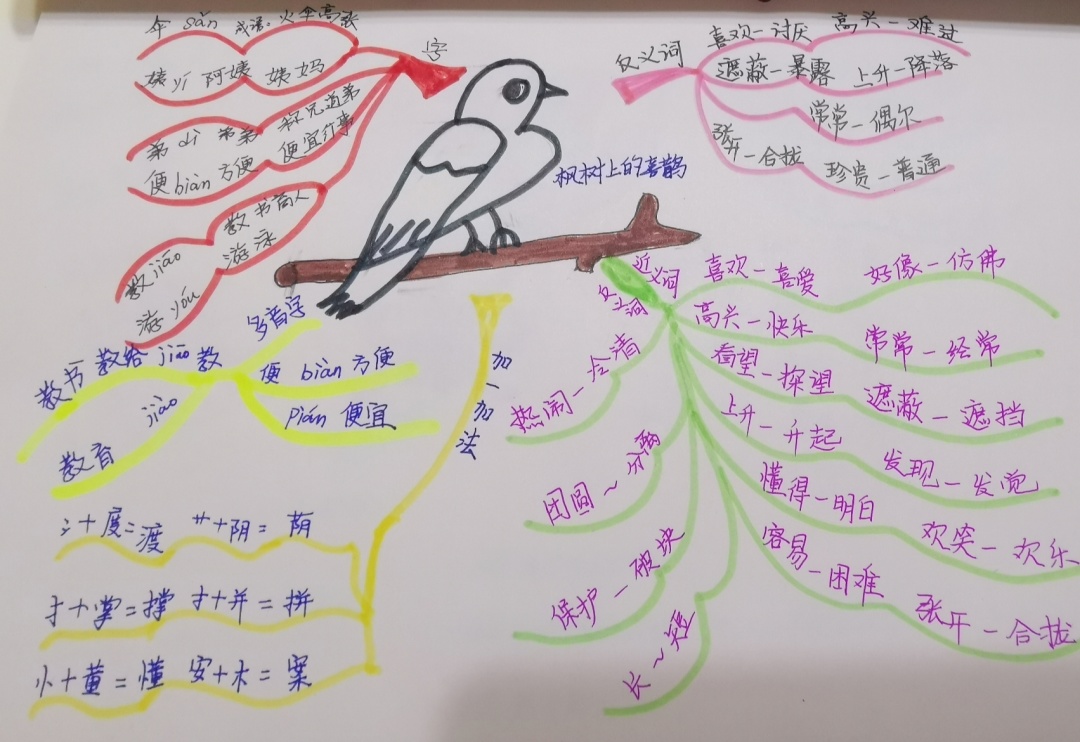 枫树上的喜鹊
字
伞 sǎn 成语：火伞高张
姨 yí 阿姨 姨妈
弟 dì 弟弟 称兄道弟
便 biàn 方便 便宜行事
教 jiāo 教书商人
游 yóu 游泳
反义词
喜欢—讨厌 高兴—难过
遮蔽—暴露 上升—降落
常常—偶尔
张开—合拢 珍贵—普通
多音字
教书 教给 jiāo 教
jiào
教育
便 biàn 方便
Pián 便宜
加一加法
氵+度=渡 艹+阴=荫
扌+掌=撑 扌+并=拼
忄+董=懂 安+木=案
近义词
反义词
喜欢—喜爱 好像—仿佛
高兴—快乐 常常—经常
看望—探望 遮蔽—遮挡
上升—升起 发现—发觉
懂得—明白 欢笑—欢乐
容易—困难 张开—合拢
热闹—冷清
团圆~分离
保护—破坏
长~短